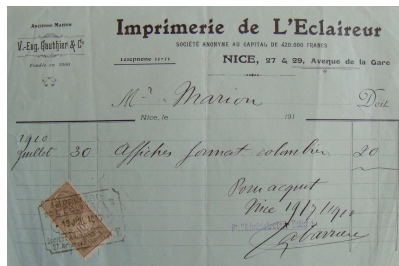 Ancienne Maison
Imprimerie de L'Eclaireur
V.-Eug. Gauthier & Cº
SOCIÉTÉ ANONYME AU CAPITAL DE 420.000 FRANCS
Téléphone 11-11
NICE, 27 & 29, Avenue de la Gare
Mr Marion Doit
Nice, le 191
1910
Juillet 30 affiches format colombier 20
Pour acquit
Nice 19/7/1910